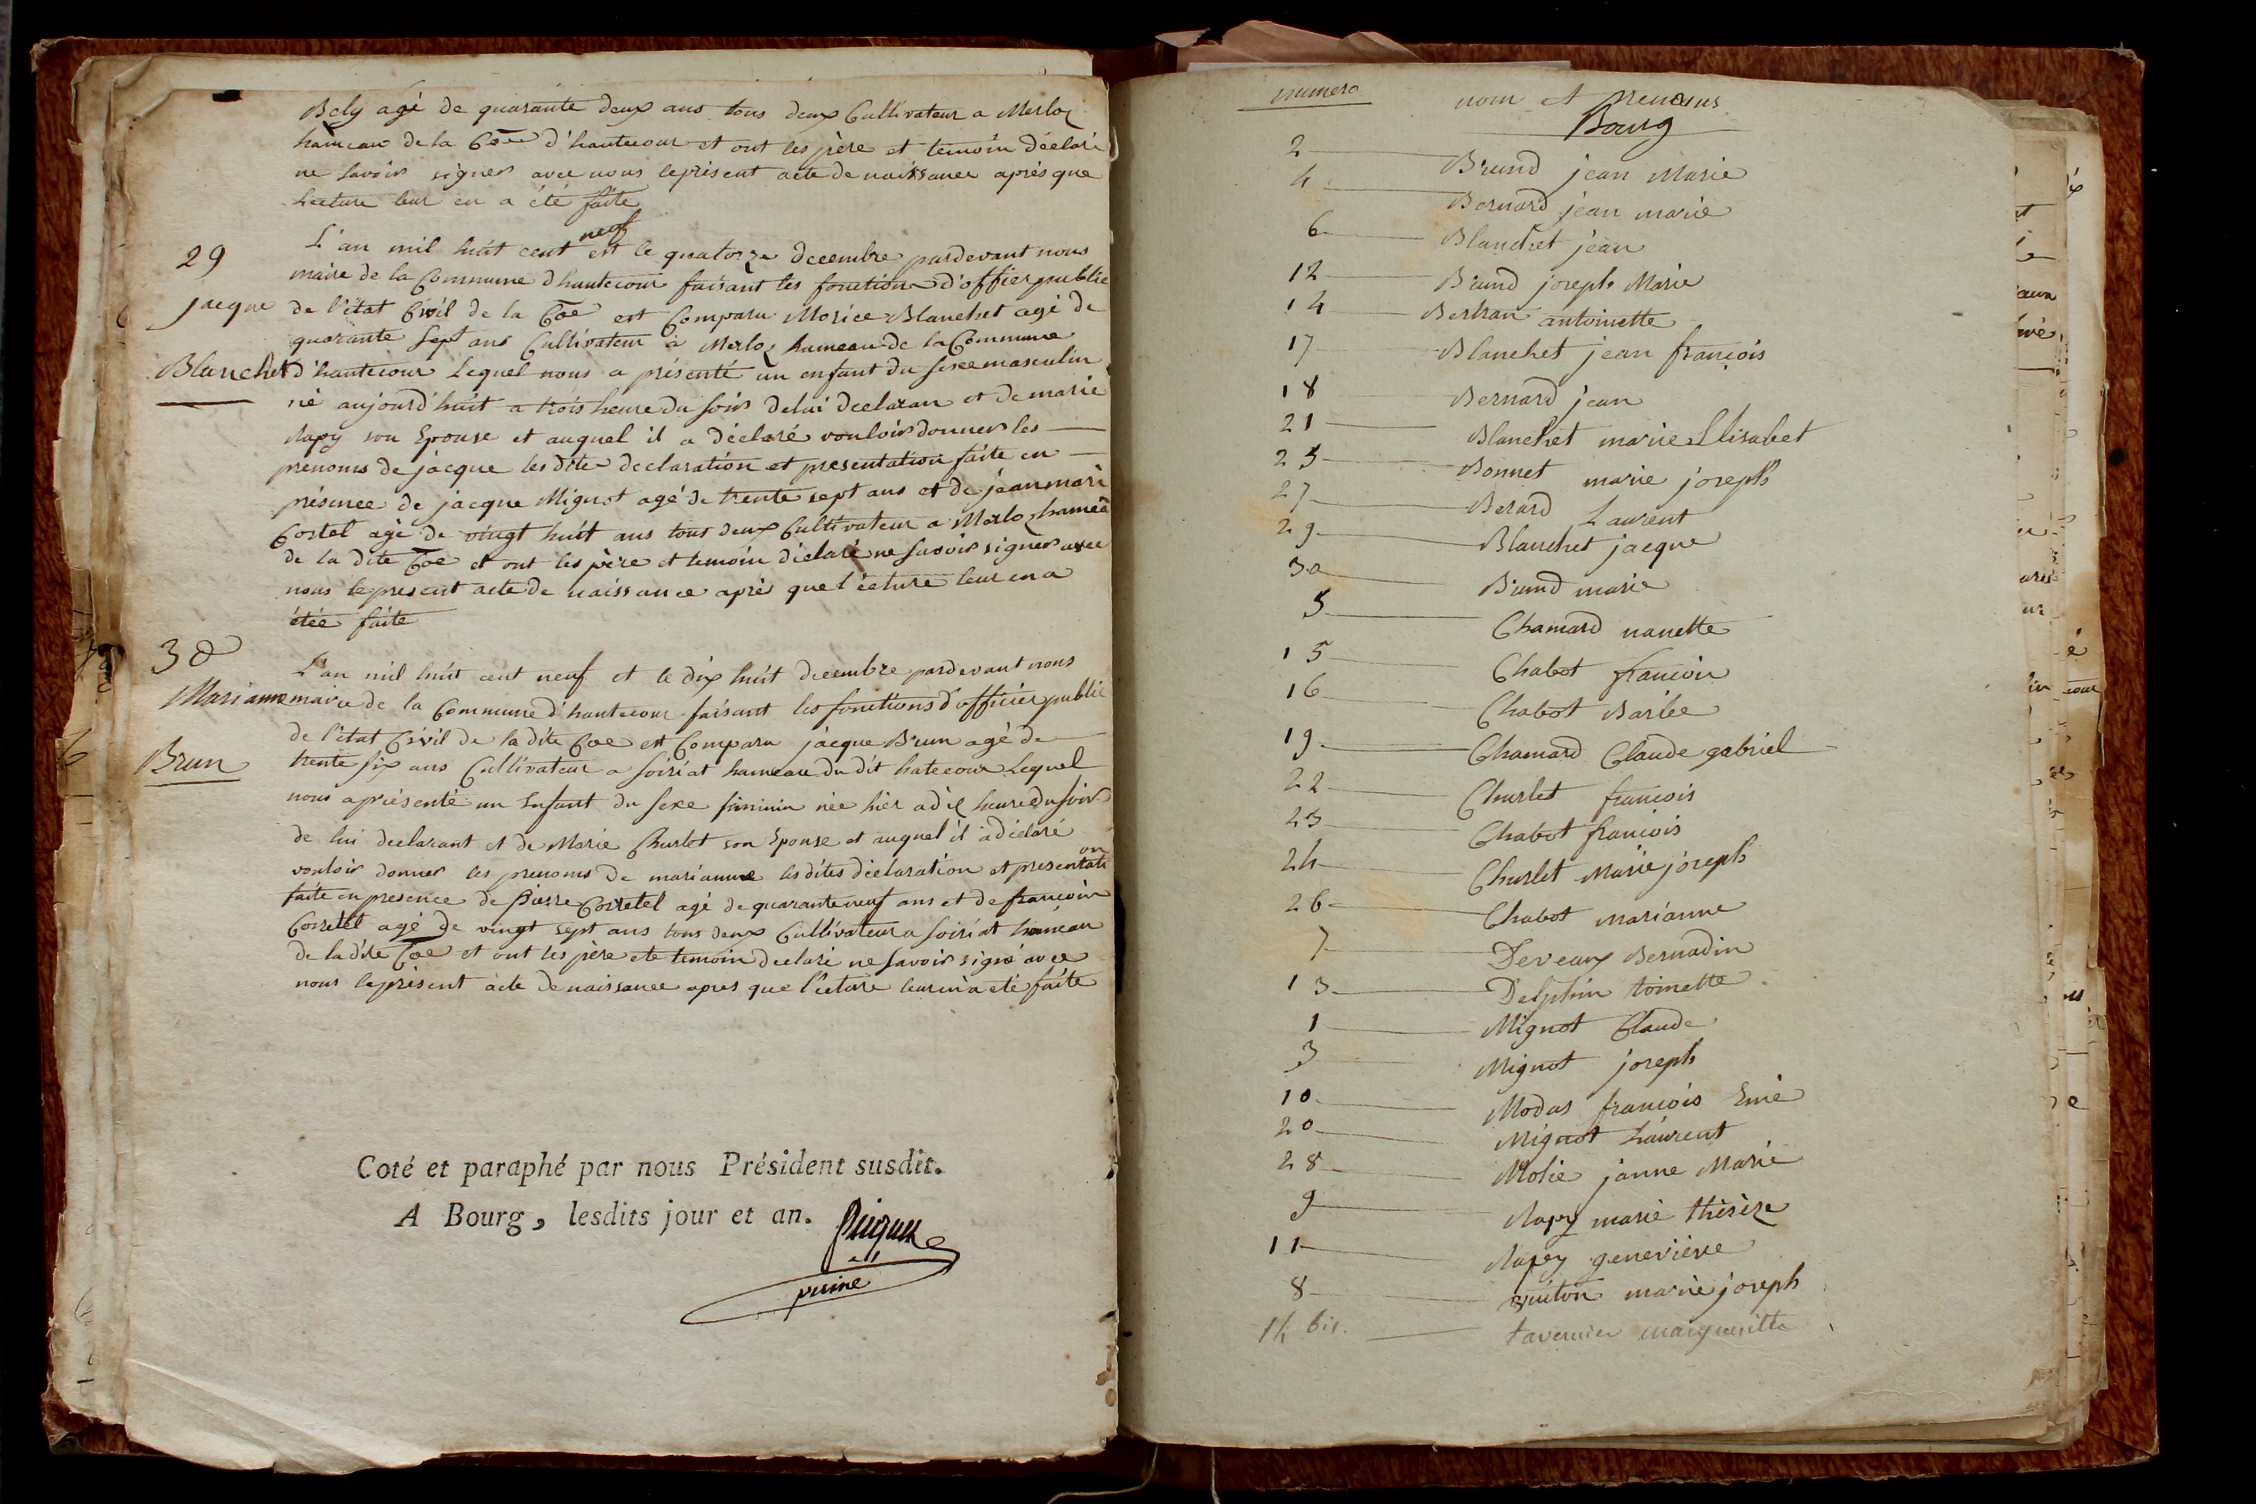 Bely agé de quarante deux ans tous deux Cultivateur a Merloz
hameau de la Coe d'hautecour et ont les père et temoin déclaré
ne savoir signer avec nous le présent acte de naissance après que
Lecture leur en a été faite
29
jacque
Blanchet
L'an mil huit cent neuf et le quatorze decembre pardevant nous
maire de la Commune d'hautecour faisant les fonction d'offier publie
de l'état Civil de la Coe est Comparu Morice Blanchet agé de
quarante sept ans Cultivateur a Merloz hameau de la Commune
d'hautecour Lequel nous a présenté un enfant du sexe masculin
né aujourd'huit a trois heure du soir delui declaran et de marie
Rapy son Epouse et auquel il a déclaré vouloir donner les
prenoms de jacque les dite declaration et presentation faite en
présence de jacque Mignot agé de trente sept ans et de jean mari
Cortel agé de vingt huit ans tous deux Cultivateur a Merloz hamea
de la dite Coe et ont les père et temoin déclaré ne savoir signer avec
nous le present acte de naissance après que l'ecture leur en a
étée faite
30
Marianne
Brun
L'an mil huit cent neuf et le dix huit decembre pardevant nous
maire de la Commune d'hautecour faisant les fonctions d'officier public
de l'état Civil de la dite Coe est Comparu jacque Brun agé de
trente six ans Cultivateur a soiriat hameau du dit hatecour Lequel
nous a présenté un Enfant du sexe féminin née hier a dix heure du soir
de lui declarant et de Marie Churlet son Epouse et auquel il a déclaré
vouloir donner les prenoms de marianne les dites déclaration et presentation
faite en presence de Pierre Corretel agé de quarante neuf ans et de francoin
Corretel agé de vingt sept ans tous deux Cultivateur a soiriat hameau
de la dite Coe et ont les père ete temoin declaré ne savoir signé avec
nous le présent acte de naissance apres que l'ecture leur en a eté faite
Coté et paraphé par nous Président susdit.
A Bourg, lesdits jour et an.
numero nom et prenoms
Bourg
2 Brund jean Marie
4 Bernard jean marie
6 Blanchet jean
12 Brund joseph Marie
14 Bertran antoinette
17 Blanchet jean françois
18 Bernard jean
21 Blanchet marie Elisabet
25 Bonnet marie joseph
27 Berard Laurent
29 Blanchet jacque
30 Brund marie
5 Chamard nanette
15 Chabot francoin
16 Chabot Barbe
19 Chamard Claude gabriel
22 Churlet francois
23 Chabot francois
24 Churlet Marie joseph
26 Chabot marianne
7 Deveaux Bernadin
13 Delphin toinette
1 Mignot Claude
3 Mignot joseph
10 Modas francois Emé
20 Mignot Laurent
28 Molie janne Marie
9 Rapy marie thérèze
11 Rapy genevieve
8 vuiton marie joseph
14 bis. tavernier margueritte